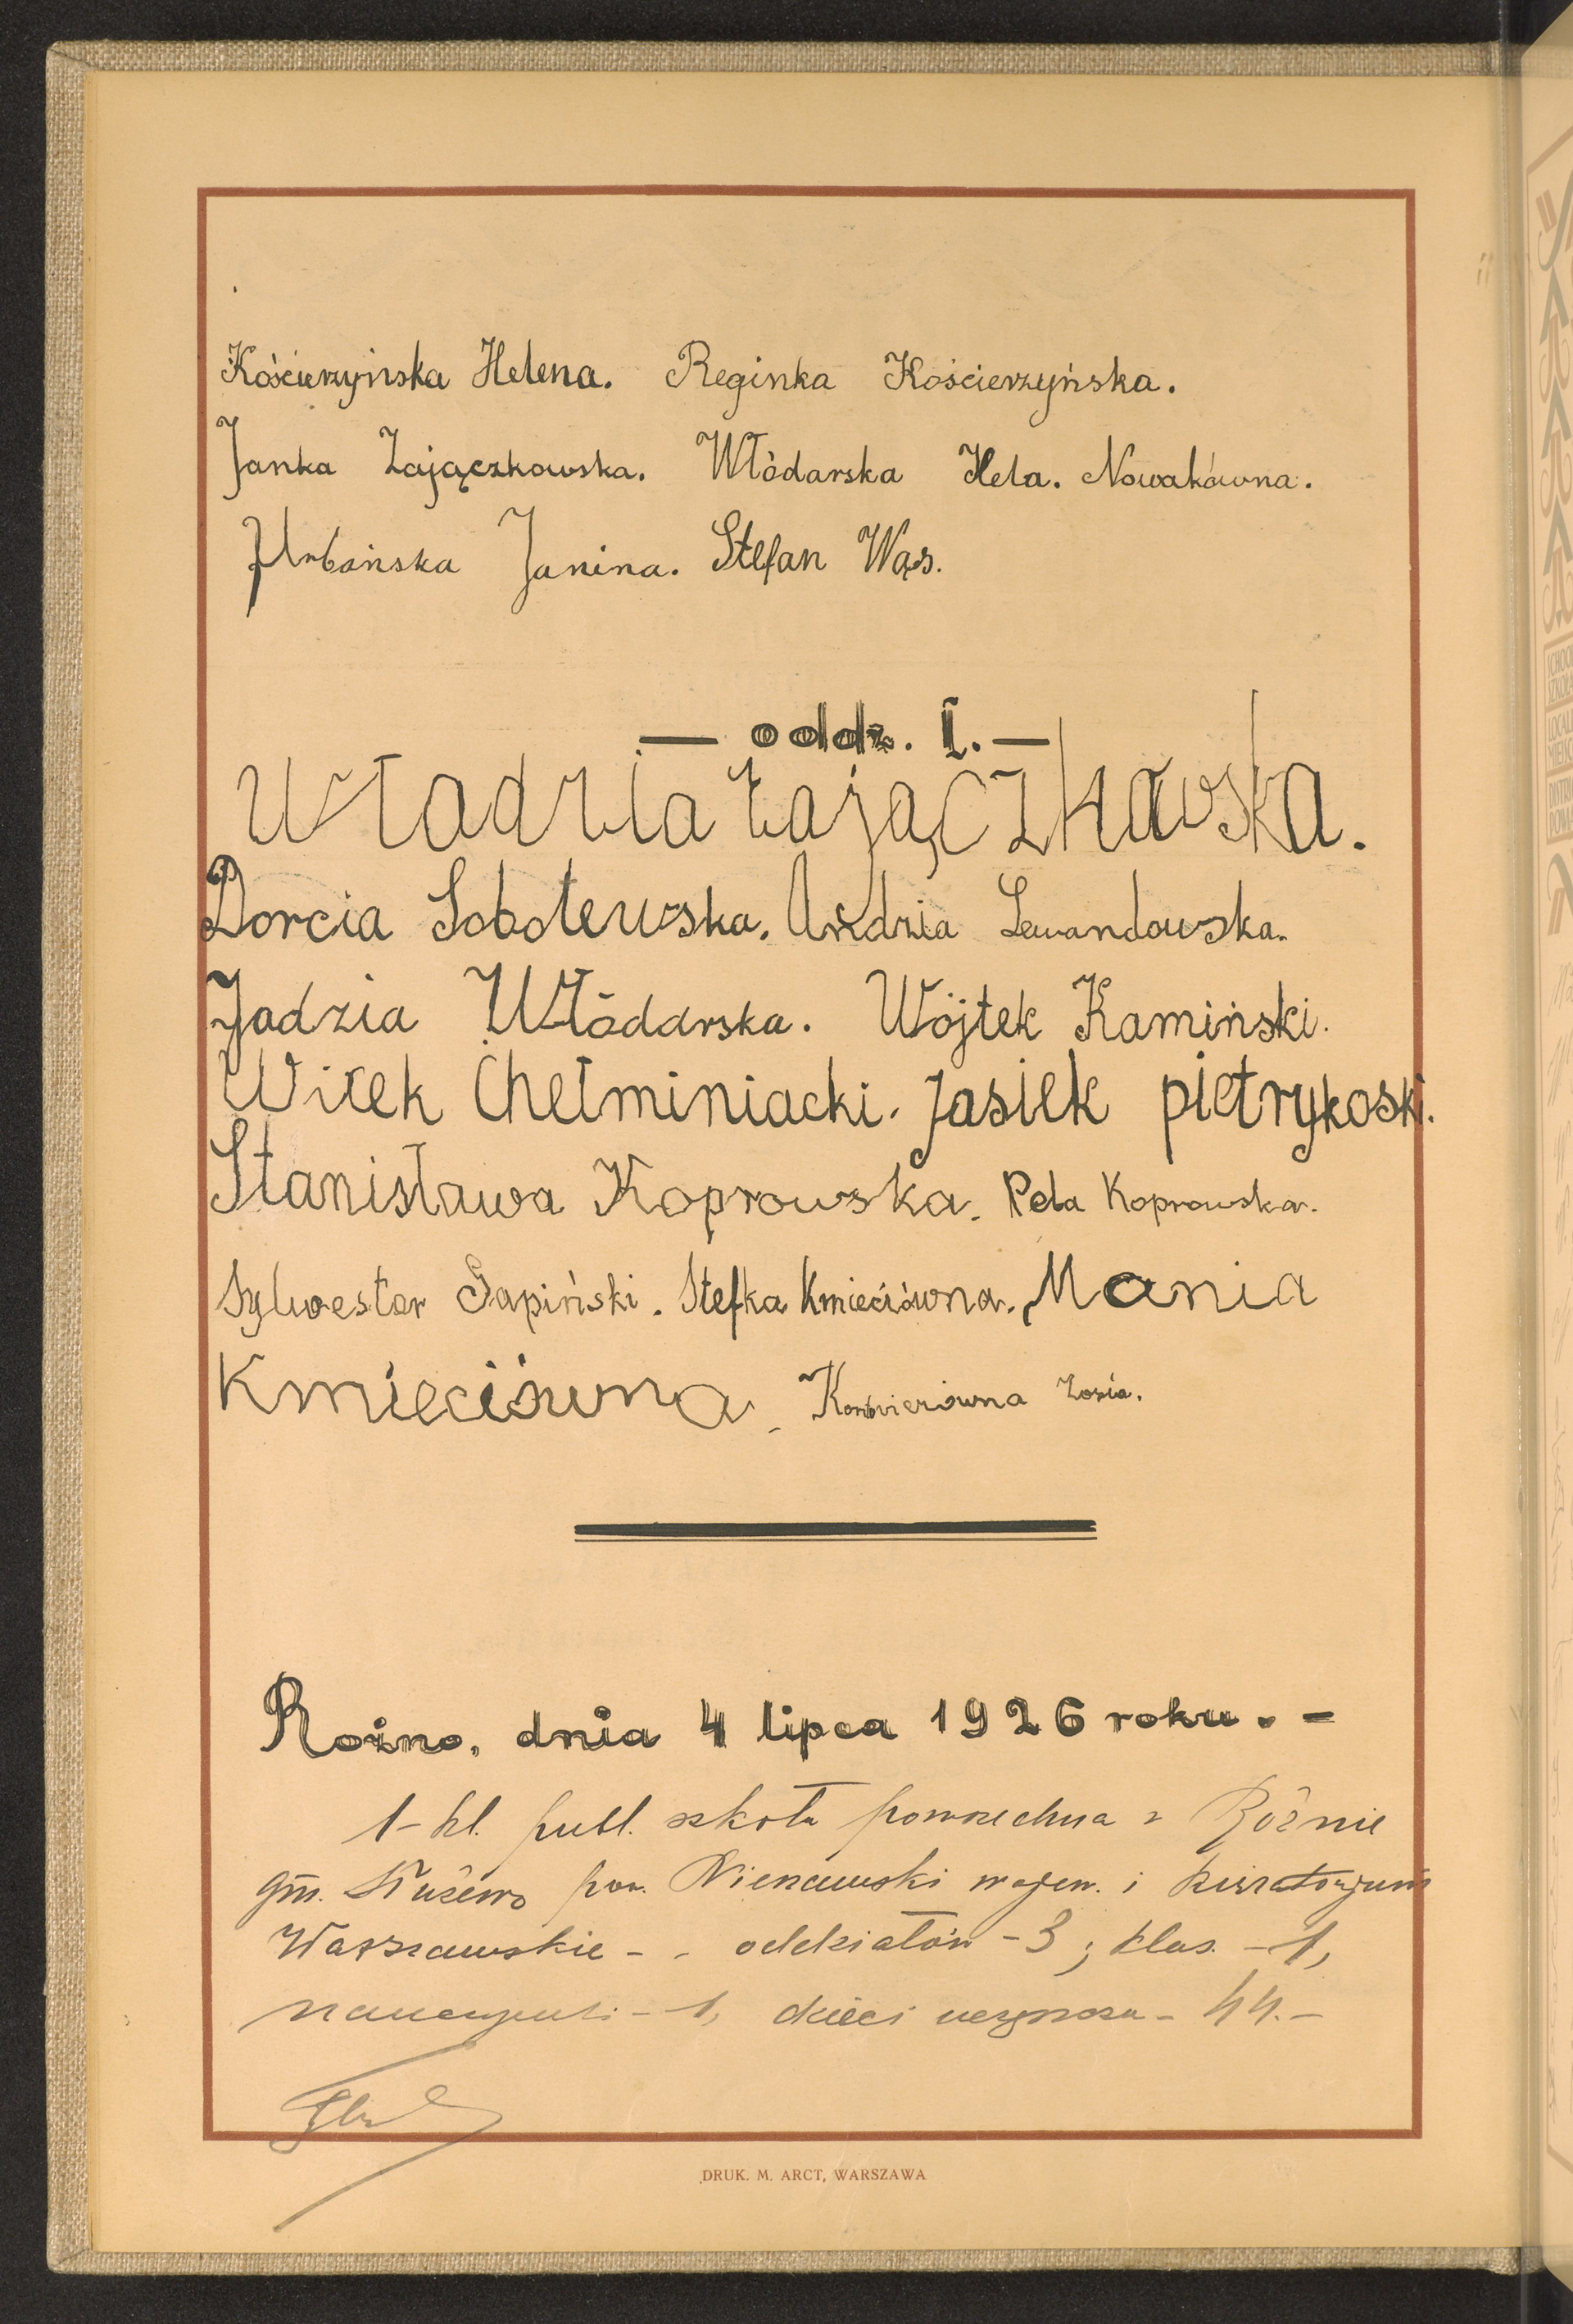 Kościerzyńska Helena. Reginka Kościerzyńska.
Janka Zajączkowska. Włódarska Hela. Nowakówna.
Urbańska Janina. Stefan Wąs.
— oddz. I. —
Władzia Zajączkowska.
Dorcia Sobolewska. Andzia Lewandowska.
Jadzia Włódarska. Wójtek Kamiński.
Witek Chełminiacki. Jasiek pietrykoski.
Stanisława Koprowska. Pela Koprowska.
Sylwester Sapiński. Stefka Kmieciówna. Mania
Kmieciówna. Zosia.
Rożno, dnia 4 lipca 1926 roku. -
1-kl. publ. szkoła powszechna w Różnie
gm. Służewo pow. Nieszawski wojew. i Kuratorjum
Warszawskie - - oddziałów - 3; klas. - 1,
nauczycieli - 1, dzieci - 44. -
DRUK. M. ARCT, WARSZAWA